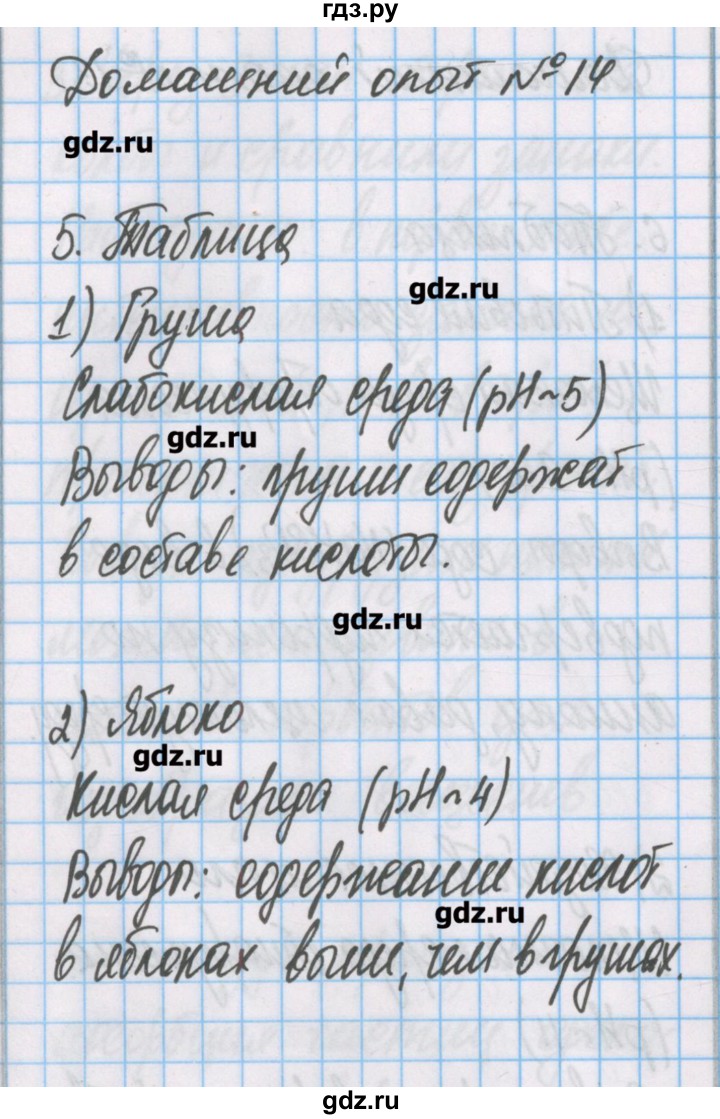 гдз.ру
Домашний опыт №14
gdz.ru
5. Таблица
gdz.ru
1) Груша
Слабокислая среда (pH~5)
gdz.ru
Выводы: груши содержат
в составе кислоты.
gdz.ru
2) Яблоко
gdz.ru
Кислая среда (pH~4)
Выводы: содержание кислот
gdz.ru
в яблоках выше, чем в грушах.
gdz.ru